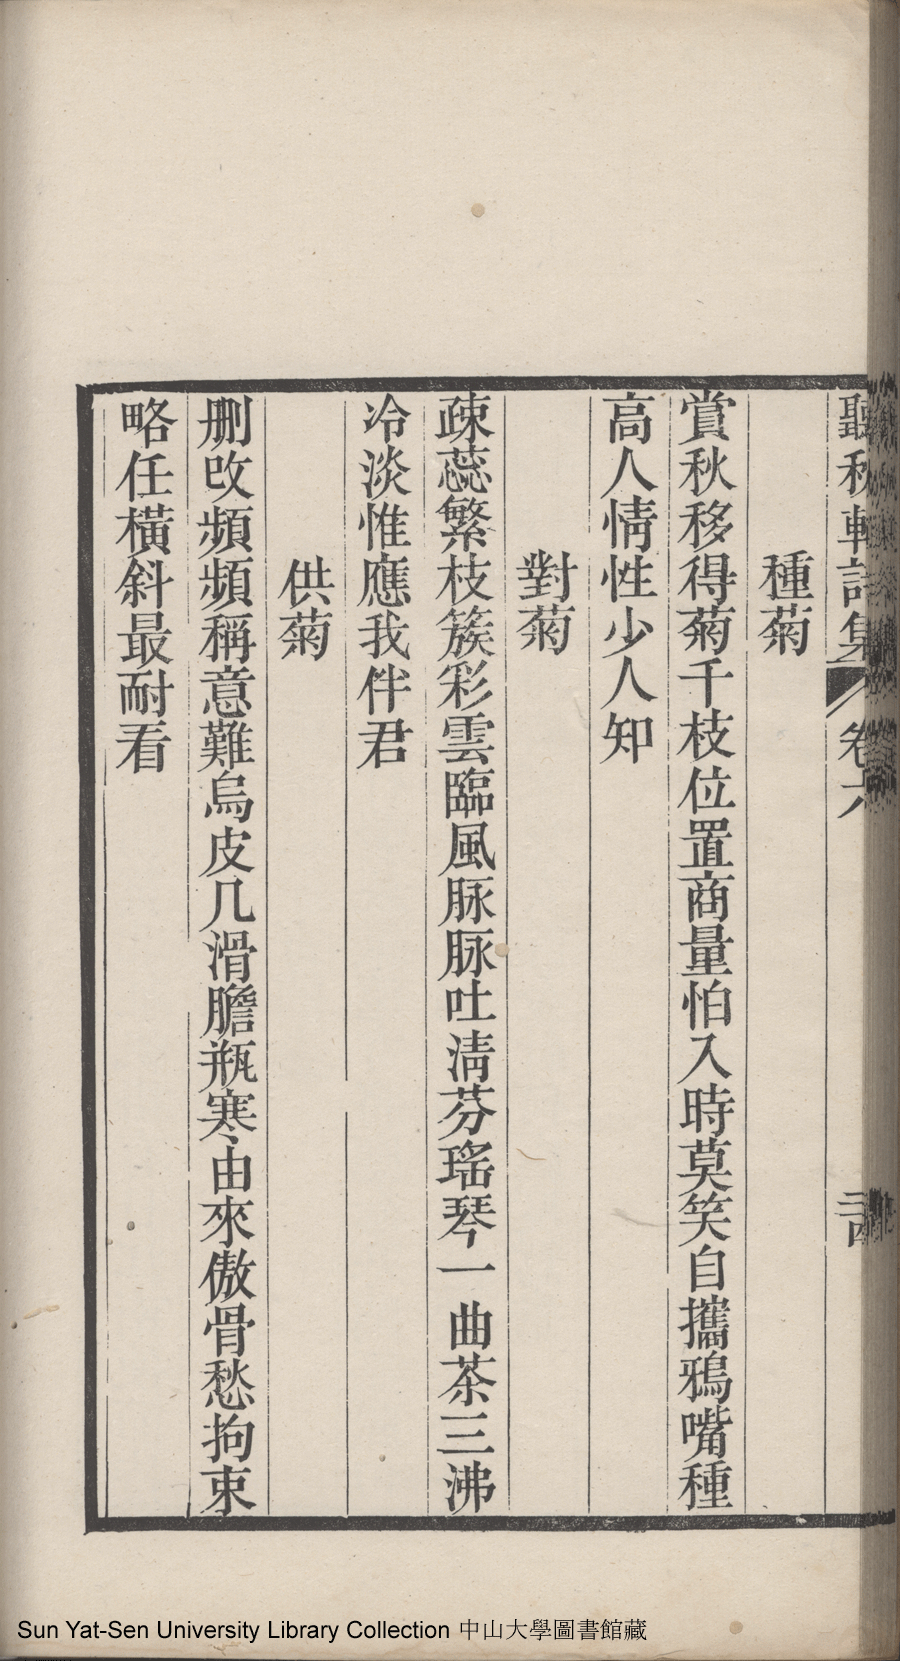 聽秋軒詩集 卷六
種菊
賞秋移得菊千枝位置商量怕入時莫笑自攜鴉嘴種
高人情性少人知
對菊
疎蕊繁枝簇彩雲臨風脉脉吐淸芬瑤琴一曲茶三沸
冷淡惟應我伴君
供菊
删改頻頻稱意難烏皮几滑膽瓶寒由來傲骨愁拘束
略任橫斜最耐看
Sun Yat-Sen University Library Collection 中山大學圖書館藏